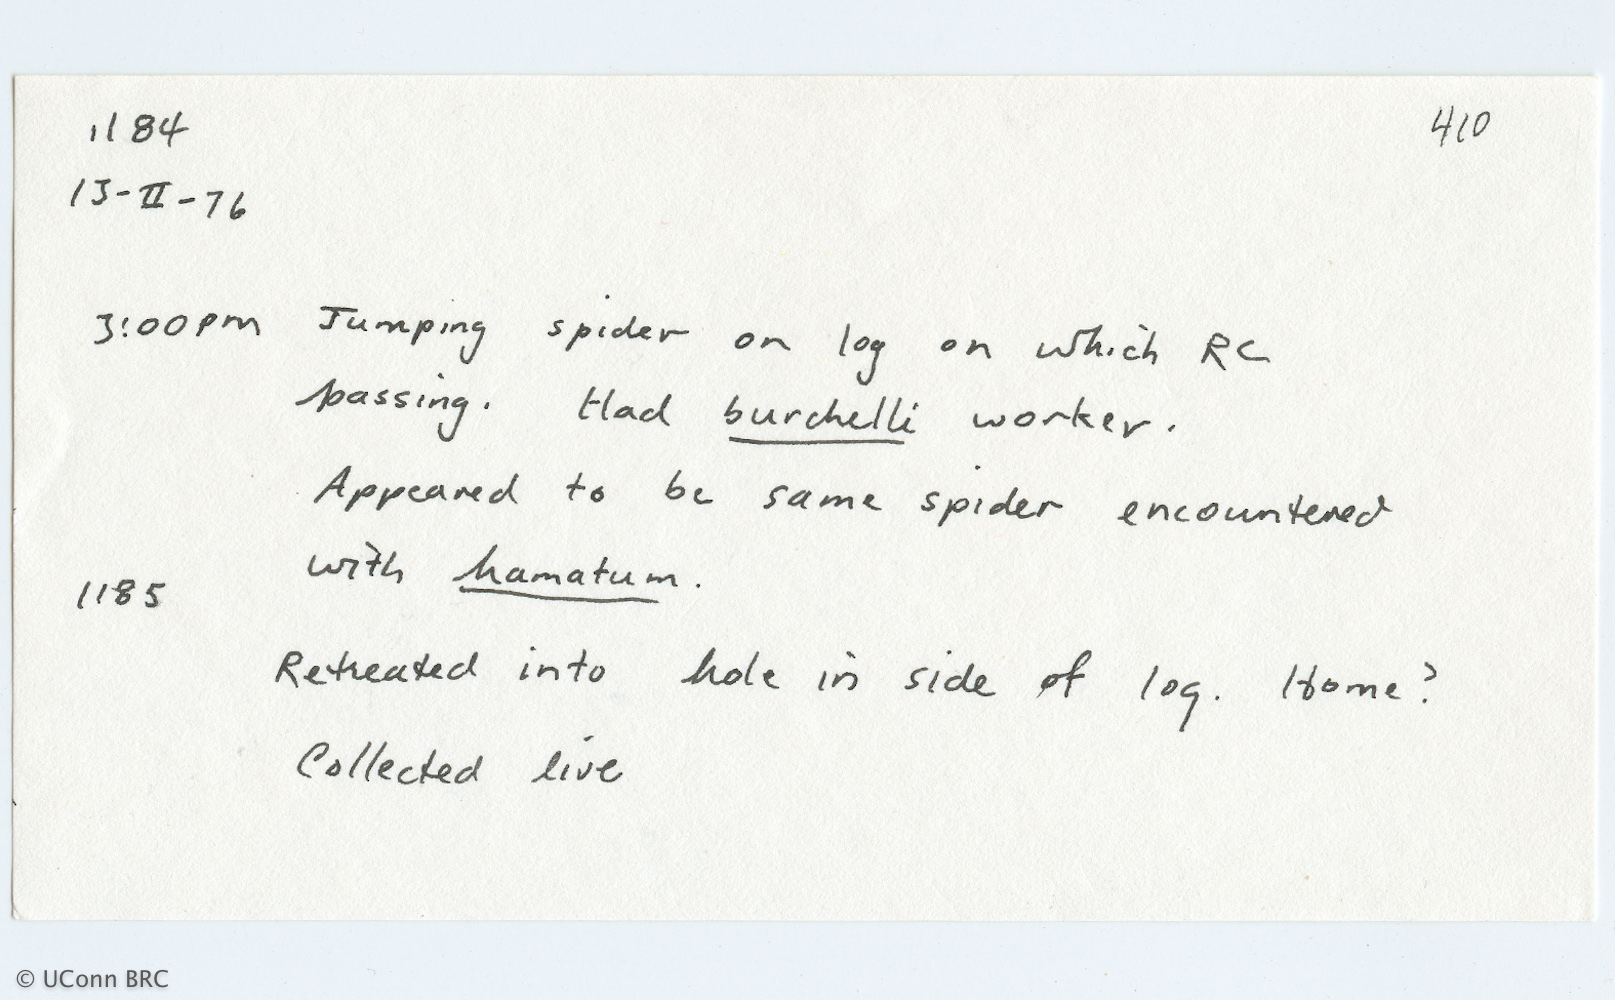 1184
410
13-II-76
3:00pm Jumping spider on log on which RC
passing. Had burchelli worker.
Appeared to be same spider encountered
with hamatum.
1185
Retreated into hole in side of log. Home?
Collected live
© UConn BRC